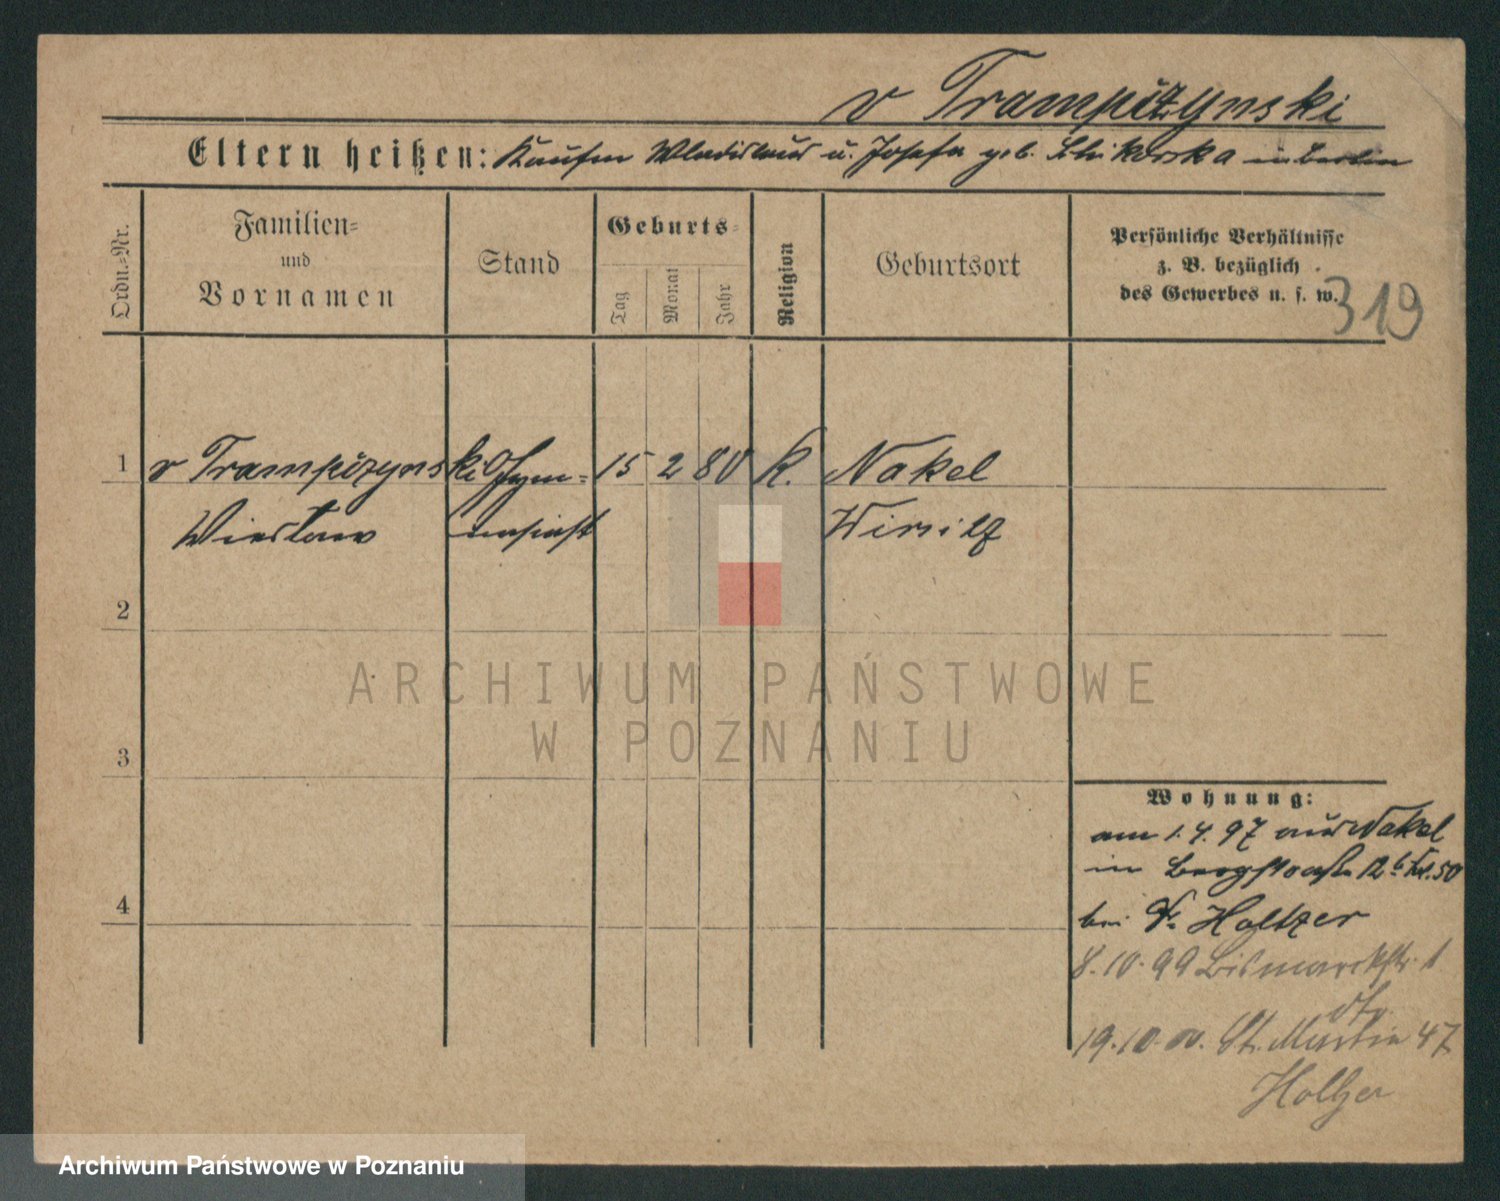 v Trampczynski
Eltern heißen: Kaufm Wladislaus u. Josefa geb. in Berlin
Ordn.-Nr.
Familien-
und
Vornamen
Stand
Geburts-
Tag
Monat
Jahr
Religion
Geburtsort
Persönliche Verhältnisse
z. B. bezüglich
des Gewerbes u. s. w.
319
1 v Trampczynski Gym- 15 2 80 K. Nakel
Wieslaw nasiast Wirsitz
2
3
4
Wohnung:
am 1.4.97 aus Nakel
in Bergstraße 12b
bei Holtzer
8.10.99 Bismarckstr. 1
dto
19.10.00. St. Martin 47
Holtzer
ARCHIWUM PAŃSTWOWE
W POZNANIU
Archiwum Państwowe w Poznaniu